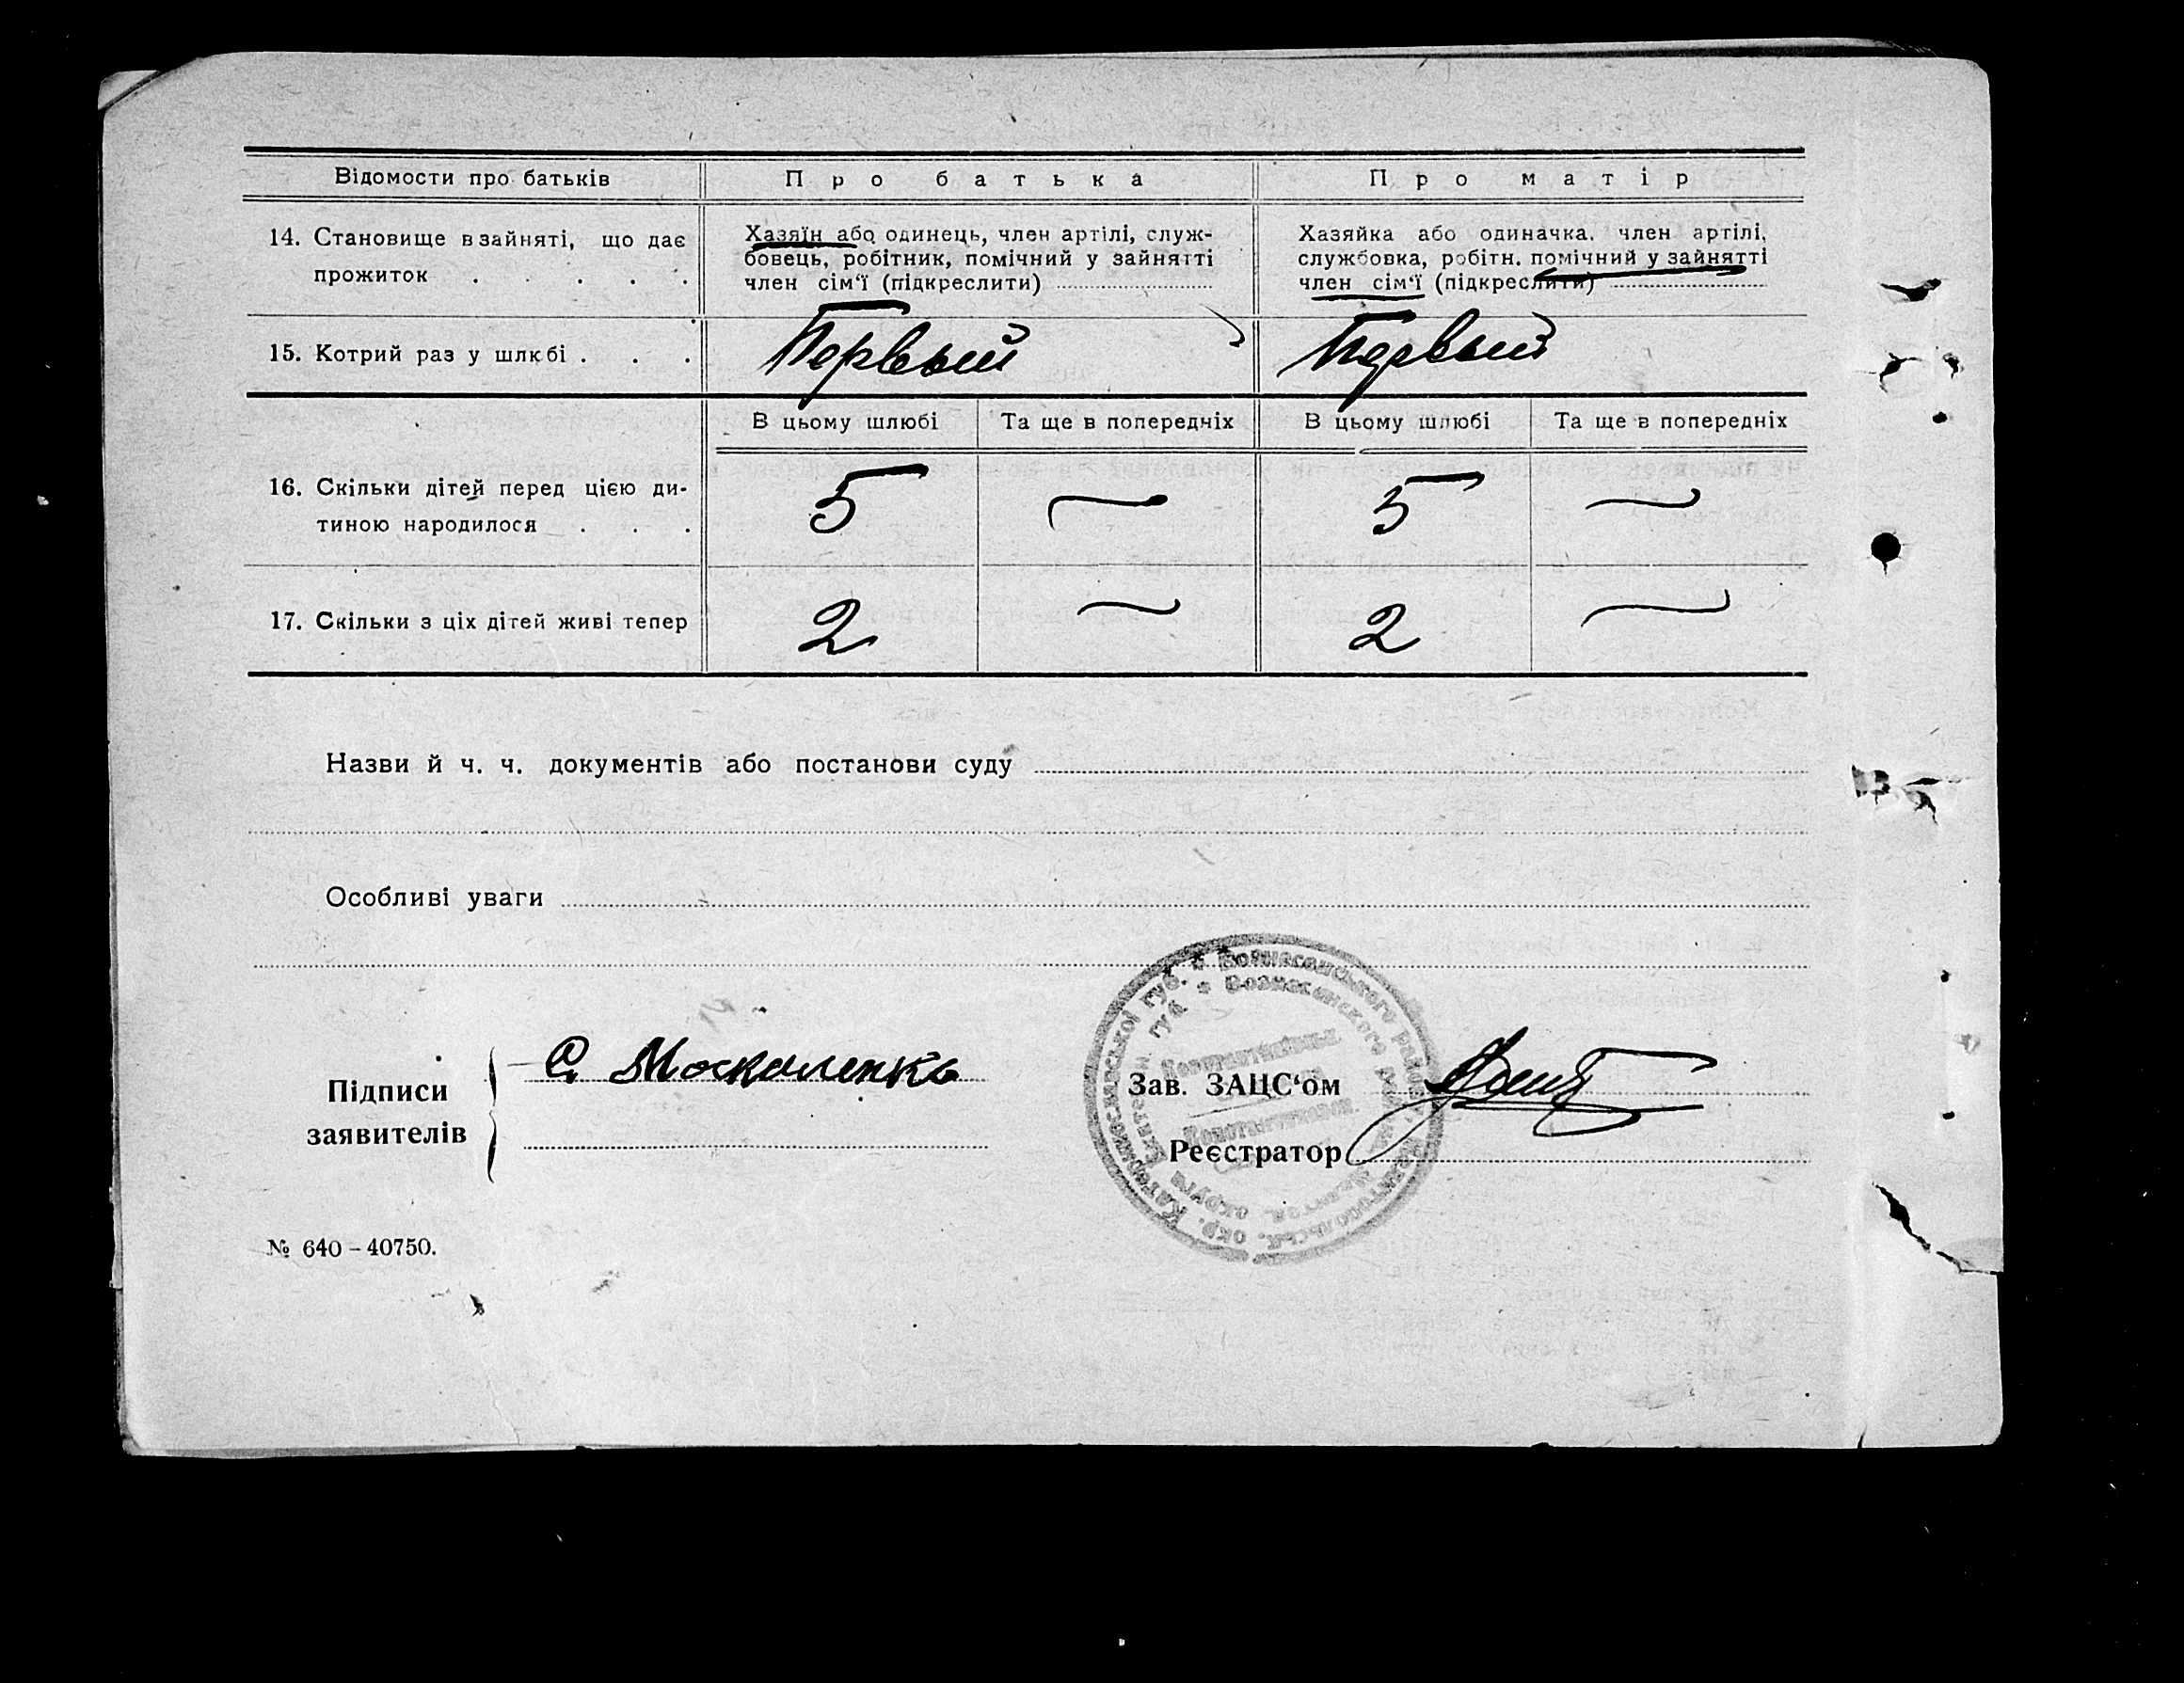 Відомости про батьків Про батька Про матір
14. Становище в зайняті, що дає прожиток . . . . .
Хазяїн або одинець, член артілі, служ-
бовець, робітник, помічний у зайнятті
член сім'ї (підкреслити)
Хазяйка або одиначка, член артілі,
службовка, робітн. помічний у зайнятті
член сім'ї (підкреслити)
15. Котрий раз у шлюбі . . . Первый Первый
В цьому шлюбі Та ще в попередніх В цьому шлюбі Та ще в попередніх
16. Скільки дітей перед цією ди-
тиною народилося . . . 5 — 5 —
17. Скільки з ціх дітей живі тепер 2 — 2 —
Назви й ч. ч. документів або постанови суду
Особливі уваги
Підписи
заявителів
С. Москаленко
Зав. ЗАЦС'ом
Реєстратор
Катеринославської губ. * Вознесенського району Мелітопольськ. окр.
губ. * Вознесенского округа
№ 640 – 40750.